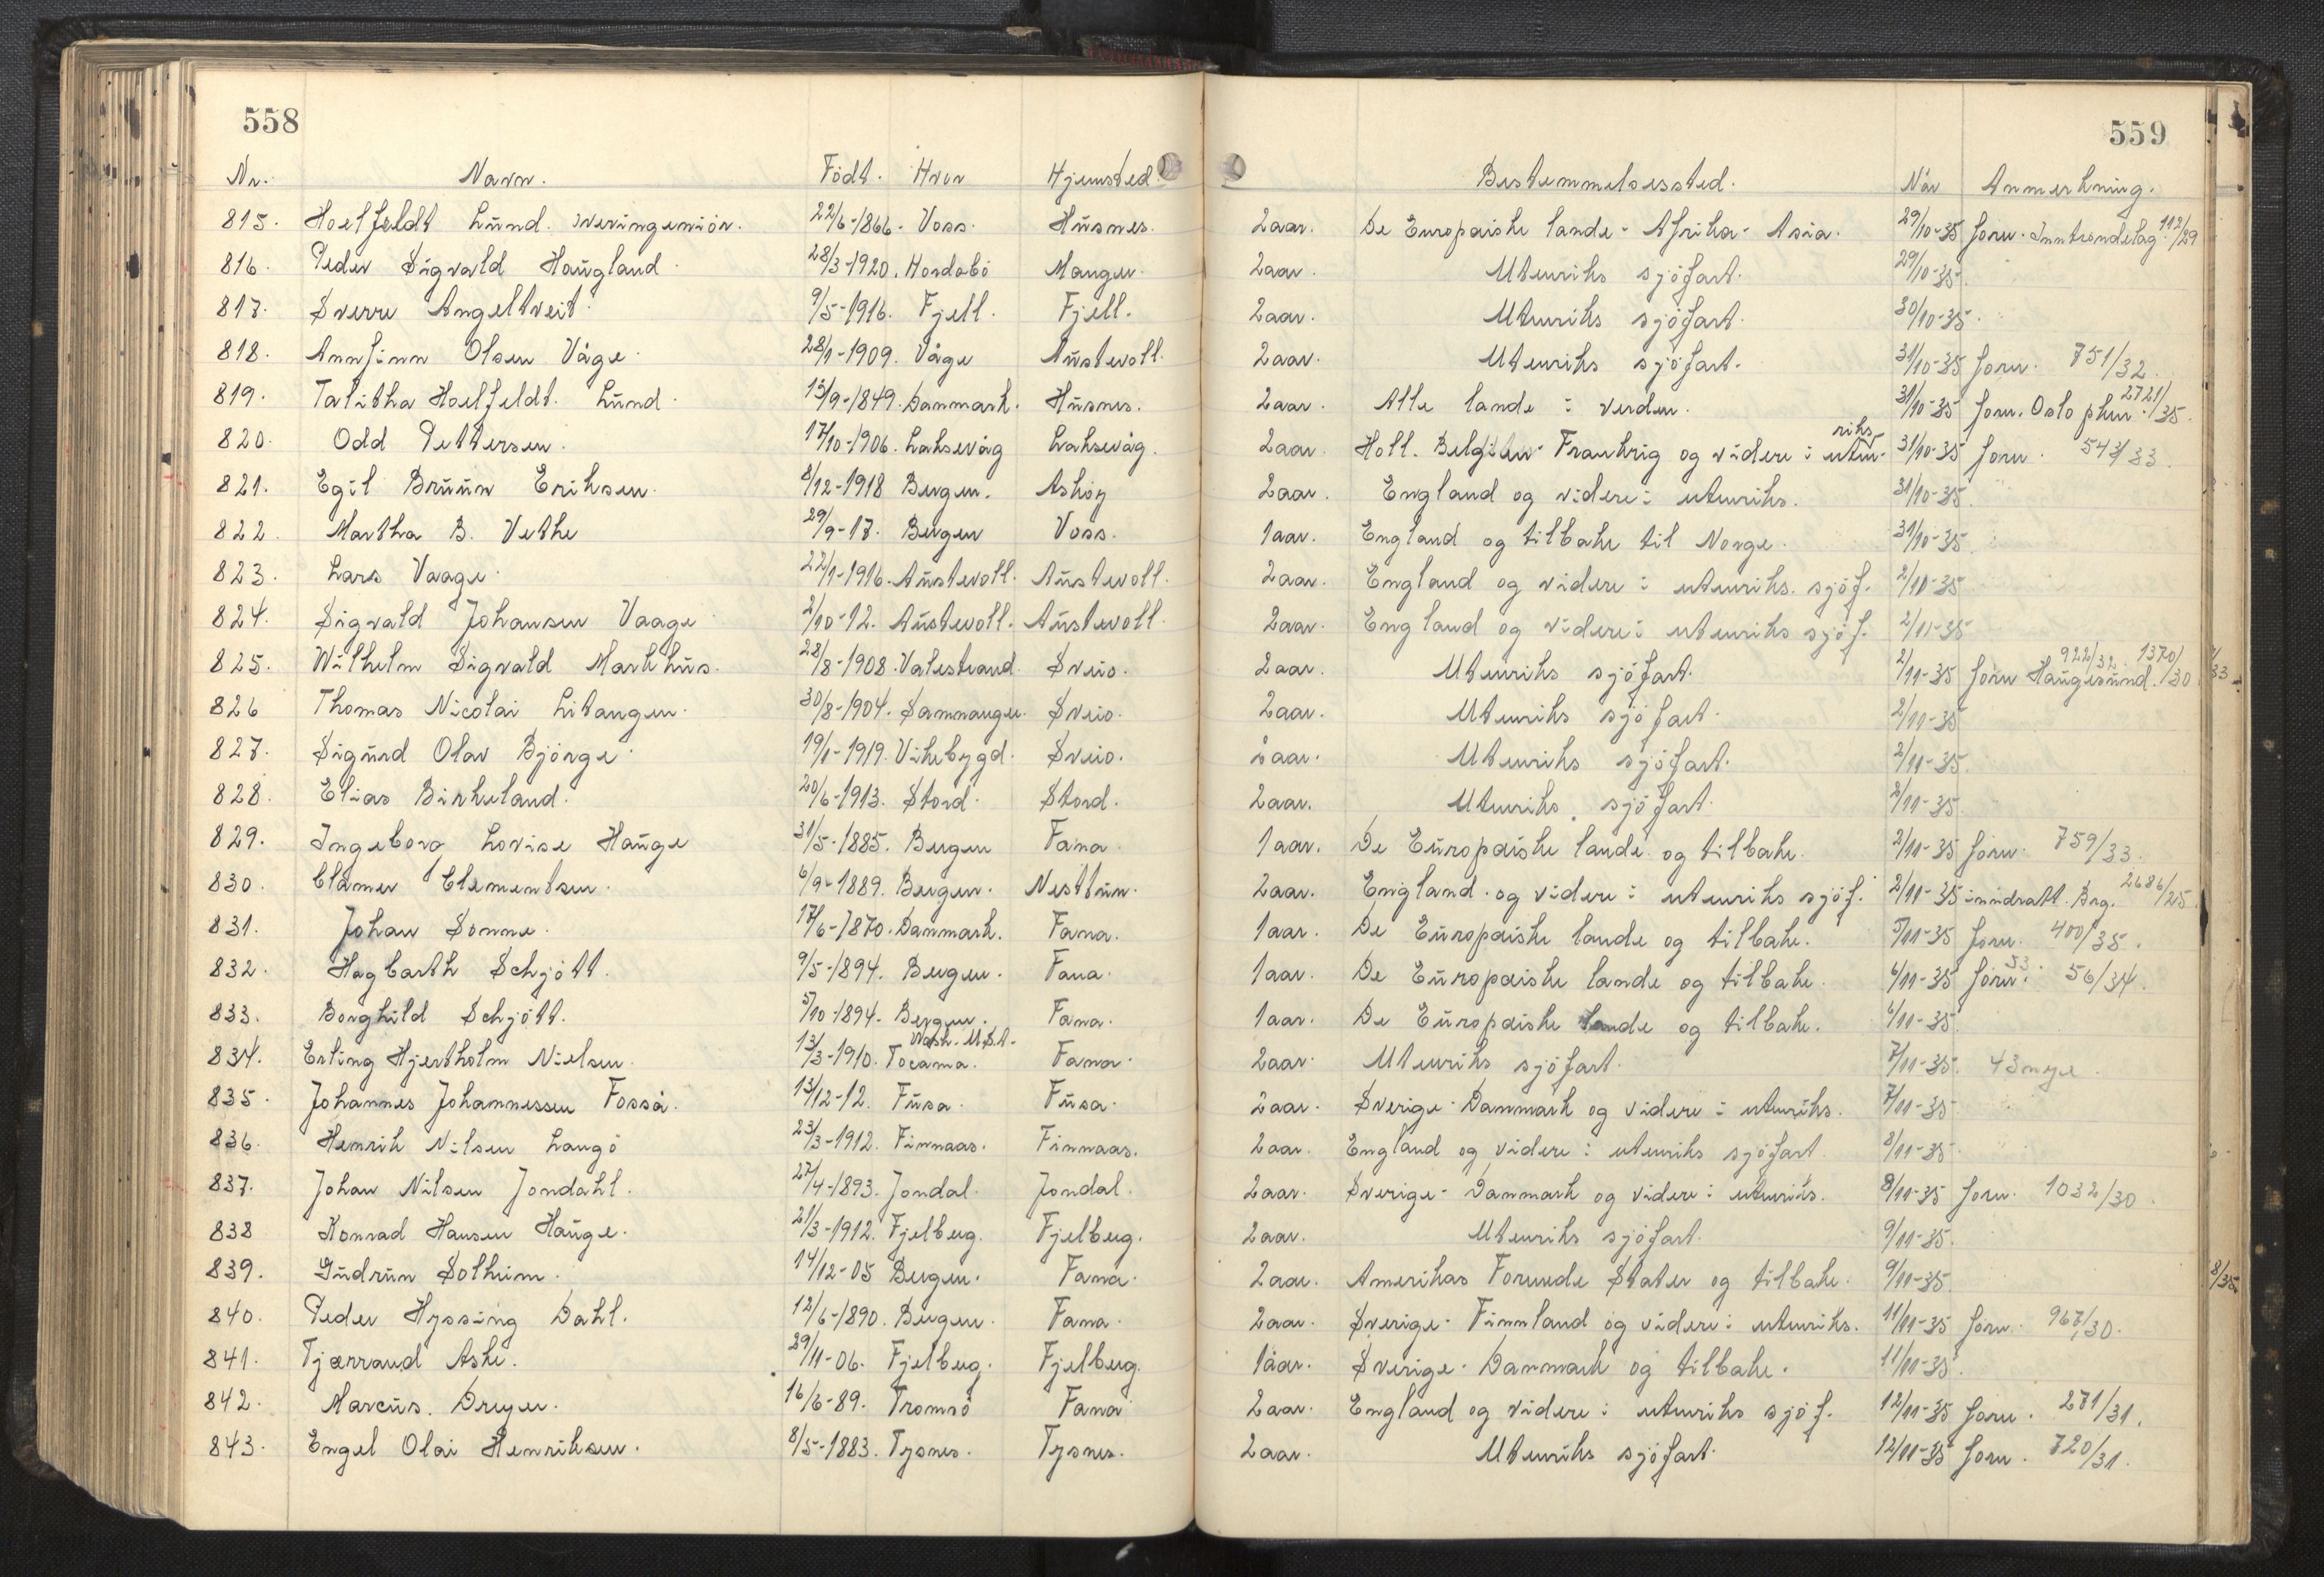 558
559
Nr. Navn. Födt. Hvor Hjemsted. Bestemmelsessted. Når Anmerkning.
815. Hoelfeldt Lund. overingeniör. 22/6-1866. Voss. Husnes. 2aar. De Europæiske lande - Afrika - Asia. 29/10-35 forn. Inntrondelag 112/29
816. Peder Sigvald Haugland. 28/3-1920. Hordabö Manger. 2aar. Utenriks sjöfart. 29/10-35.
817. Sverre Angeltveit. 9/5-1916. Fjell. Fjell. 2aar. Utenriks sjöfart. 30/10-35.
818. Annfinn Olsen Våge. 28/1-1909. Våge Austevoll. 2aar. Utenriks sjöfart. 31/10-35 forn. 751/32.
819. Talitha Hoelfeldt. Lund. 15/9-1849. Danmark. Husnes. 2aar. Alle lande i verden. 31/10-35 forn. Oslo pkm. 2721/35.
820. Odd Pettersen. 17/10-1906. Laksevåg Laksevåg. 2aar. Holl. Belgien - Frankrig og videre i utenriks 31/10-35 forn. 543/33.
821. Egil Bruun Eriksen. 8/12-1918 Bergen. Askøy 2aar. England og videre i utenriks. 31/10-35.
822. Martha B. Vethe 29/9-17. Bergen Voss. 1aar. England og tilbake til Norge. 31/10-35.
823. Lars Vaage. 22/1-1916. Austevoll. Austevoll. 2aar. England og videre i utenriks. sjöf. 2/10-35
824. Sigvald Johansen Vaage 2/10-12. Austevoll. Austevoll. 2aar. England og videre i utenriks sjöf. 2/11-35
825. Wilhelm Sigvald Markhus. 28/8-1908. Valestrand. Sveio. 2aar. Utenriks sjöfart. 2/11-35 forn 922/32. Haugesund. 1370/30. 33
826 Thomas Nicolai Litangen. 30/8-1904. Samnanger. Sveio. 2aar. Utenriks sjöfart. 2/11-35
827. Sigurd Olav Björge. 19/1-1919. Vikebygd. Sveio. 2aar. Utenriks sjöfart. 2/11-35.
828. Elias Birkeland. 20/6-1913. Stord. Stord. 2aar. Utenriks sjöfart. 2/11-35.
829. Ingeborg Lovise Hauge 31/5-1885. Bergen Fana. 1aar. De Europæiske lande og tilbake. 2/11-35 forn. 759/33.
830. Clamer Clementsen. 6/9-1889. Bergen. Nesttun. 2aar. England og videre i utenriks sjöf. 2/11-35 inndratt. Brg. 2686/25.
831. Johan Sömme. 17/6-1870. Danmark. Fana. 1aar. De Europæiske lande og tilbake. 5/11-35 forn. 400/35.
832. Hagbarth Schjött. 9/5-1894. Bergen. Fana. 1aar. De Europæiske lande og tilbake. 6/11-35 forn. 53 56/34.
833. Borghild Schjött. 5/10-1894. Bergen. Fana. 1aar. De Europæiske lande og tilbake. 6/11-35.
834. Erling Hjertholm Nielsen 13/3-1910. Tocama. Wash. U.S.A. Fana. 2aar. Utenriks sjöfart. 7/11-35. 43 mye.
835. Johannes Johannessen Fosså. 13/12-12. Fusa. Fusa. 2aar. Sverige - Danmark og videre i utenriks. 7/11-35
836. Henrik Nilsen Langö 23/3-1912. Finnaas. Finnaas. 2aar. England og videre i utenriks sjöfart 8/11-35
837. Johan Nilsen Jondahl. 27/4-1893. Jondal. Jondal. 2aar. Sverige - Danmark og videre i utenriks. 8/11-35 forn. 1032/30.
838 Konrad Hansen Hauge. 21/3-1912. Fjelberg. Fjelberg. 2aar. Utenriks sjöfart. 9/11-35.
839. Gudrun Solheim. 14/12-05 Bergen. Fana. 2aar. Amerikas Forenede Stater og tilbake. 9/11-35. 8/35
840. Peder Hyssing Dahl. 12/6-1890. Bergen. Fana. 2aar. Sverige - Finnland og videre i utenriks. 11/11-35 forn. 967/30.
841. Tjærrand Aske. 29/11-06. Fjelberg. Fjelberg. 1aar. Sverige - Danmark og tilbake. 11/11-35.
842. Marcus. Dreyer. 16/6-89. Tromsö Fana 2aar. England og videre i utenriks sjöf. 12/11-35 forn. 271/31.
843. Engel Olai Henriksen. 8/5-1883. Tysnes. Tysnes. 2aar. Utenriks sjöfart. 12/11-35 forn. 720/31.